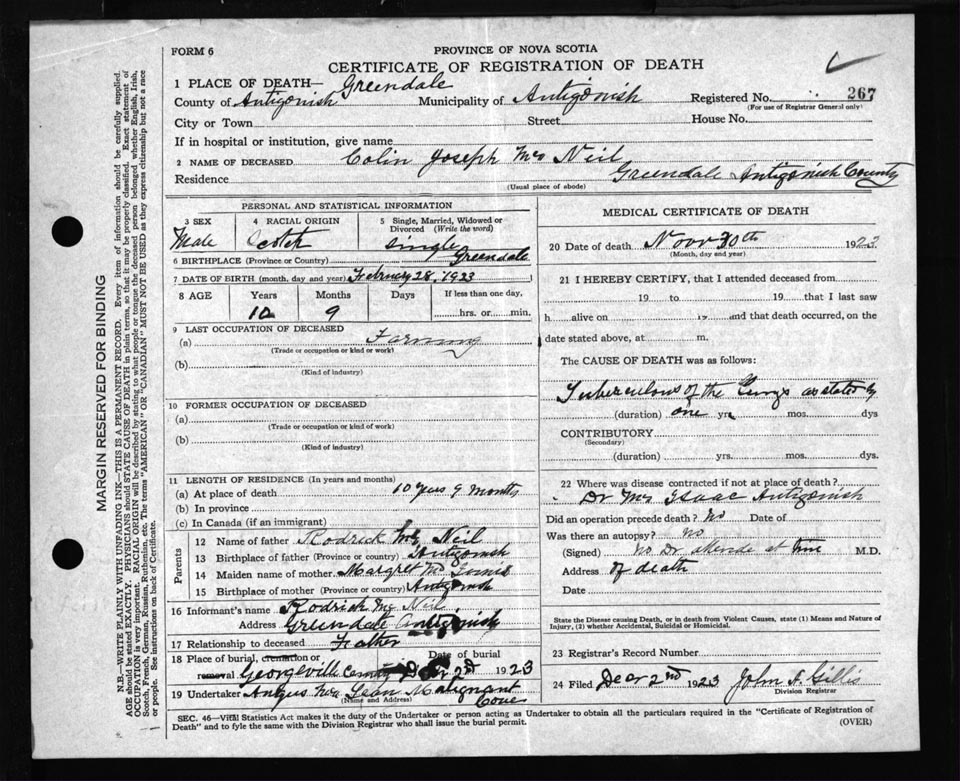 FORM 6
PROVINCE OF NOVA SCOTIA
CERTIFICATE OF REGISTRATION OF DEATH
1 PLACE OF DEATH— Greendale
County of Antigonish Municipality of Antigonish Registered No. 267
(For use of Registrar General only)
City or Town Street House No.
If in hospital or institution, give name
2 NAME OF DECEASED Colin Joseph Mc Neil
Residence Greendale Antigonish County
(Usual place of abode)
PERSONAL AND STATISTICAL INFORMATION
3 SEX 4 RACIAL ORIGIN 5 Single, Married, Widowed or Divorced (Write the word)
Male Scotch single
6 BIRTHPLACE (Province or Country) Greendale
7 DATE OF BIRTH (month, day and year) February 28, 1923
8 AGE Years Months Days If less than one day,
10 9 hrs. or min.
9 LAST OCCUPATION OF DECEASED
(a) Farming
(Trade or occupation or kind or work)
(b)
(Kind of industry)
10 FORMER OCCUPATION OF DECEASED
(a)
(Trade or occupation or kind of work)
(b)
(Kind of industry)
11 LENGTH OF RESIDENCE (In years and months)
(a) At place of death 10 years 9 months
(b) In province
(c) In Canada (if an immigrant)
Parents
12 Name of father Rodrick Mc Neil
13 Birthplace of father (Province or country) Antigonish
14 Maiden name of mother Margret Mc Innis
15 Birthplace of mother (Province or country) Antigonish
16 Informant's name Rodrick Mc Neil
Address Greendale Antigonish
17 Relationship to deceased Father
18 Place of burial, cremation or removal Georgeville Date of burial Decr 2d 1923
19 Undertaker Angus Mc Lean Malignant Cove
(Name and Address)
MEDICAL CERTIFICATE OF DEATH
20 Date of death Novr 30th 1923
(Month, day and year)
21 I HEREBY CERTIFY, that I attended deceased from
19 to 19 that I last saw
h alive on 19 and that death occurred, on
date stated above, at m.
The CAUSE OF DEATH was as follows:
Tuberculous of the Lungs as stated by
(duration) one yrs mos. dys
CONTRIBUTORY
(Secondary)
(duration) yrs. mos. dys.
22 Where was disease contracted if not at place of death?
Dr Mc Isaac Antigonish
Did an operation precede death? No Date of
Was there an autopsy? No
(Signed) No Dr attende at time M.D.
Address of death
Date
State the Disease causing Death, or in death from Violent Causes, state (1) Means and Nature of
Injury, (2) whether Accidental, Suicidal or Homicidal.
23 Registrar's Record Number
24 Filed Decr 2nd 1923 John A. Gillis
Division Registrar
SEC. 46—Vital Statistics Act makes it the duty of the Undertaker or person acting as Undertaker to obtain all the particulars required in the "Certificate of Registration of
Death" and to fyle the same with the Division Registrar who shall issue the burial permit. (OVER)
MARGIN RESERVED FOR BINDING
N.B.—WRITE PLAINLY WITH UNFADING INK—THIS IS A PERMANENT RECORD. Every item of information should be carefully supplied.
AGE should be stated EXACTLY. PHYSICIANS should STATE CAUSE OF DEATH in plain terms, so that it may be properly classified. Exact statement of
OCCUPATION is very important. RACIAL ORIGIN will be described by stating to what people or tongue the deceased person belonged whether English, Irish,
Scotch, French, German, Russian, Ruthenian, etc. The terms "AMERICAN" OR "CANADIAN" MUST NOT BE USED as they express citizenship but not a race
or people. See instructions on back of Certificate.